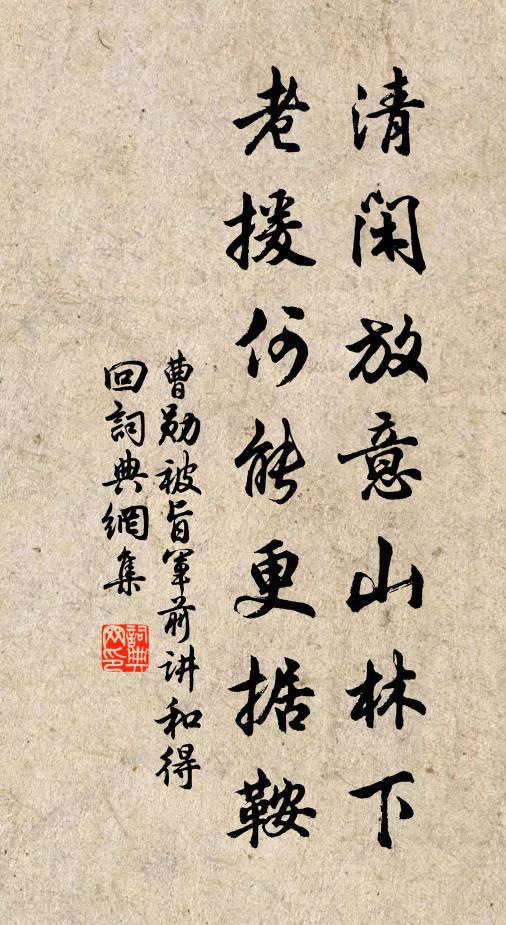 清闲放意山林下
老援何能更据鞍
曹勋被旨军前讲和得
回詞典網集
詞典
网印